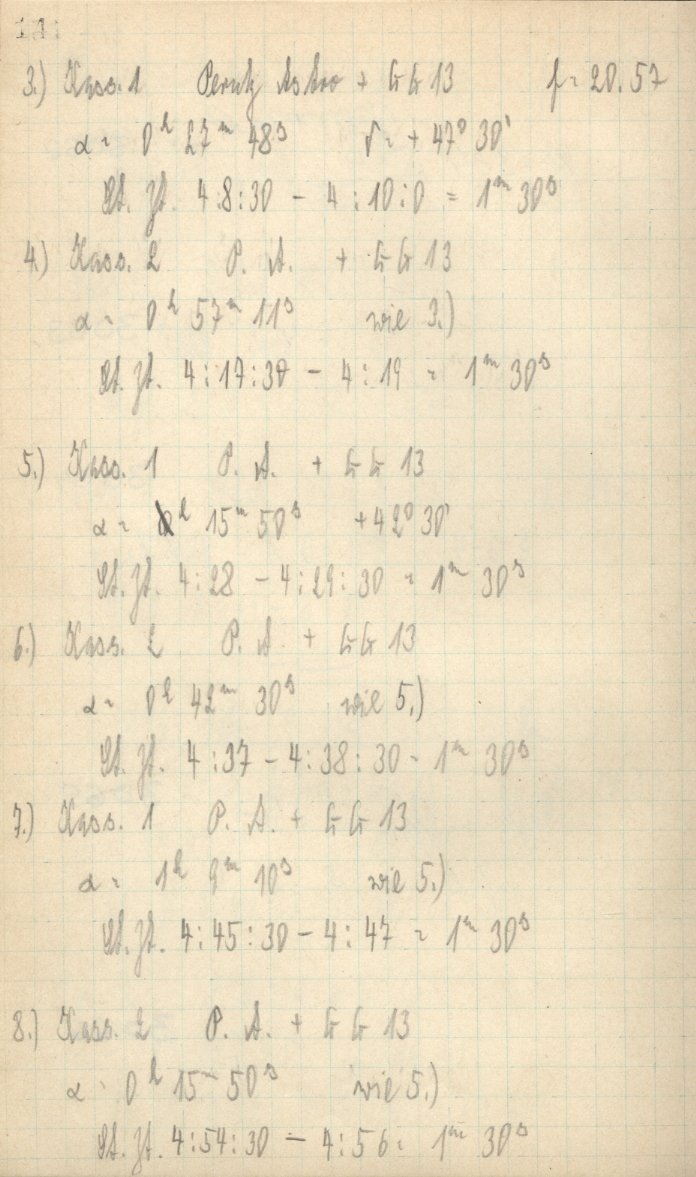 3.) Kass. 1 Perutz Astro + GG 13 f = 20.57
α = 0ʰ 27ᵐ 48ˢ δ = + 47° 30'
St. Zt. 4:8:30 - 4:10:0 = 1ᵐ 30ˢ
4.) Kass. 2 P. A. + GG 13
α = 0ʰ 57ᵐ 11ˢ wie 3.)
St. Zt. 4:17:30 - 4:19 = 1ᵐ 30ˢ
5.) Kass. 1 P. A. + GG 13
α = 0ʰ 15ᵐ 50ˢ +42° 30'
St. Zt. 4:28 - 4:29:30 = 1ᵐ 30ˢ
6.) Kass. 2 P. A. + GG 13
α = 0ʰ 42ᵐ 30ˢ wie 5.)
St. Zt. 4:37 - 4:38:30 = 1ᵐ 30ˢ
7.) Kass. 1 P. A. + GG 13
α = 1ʰ 9ᵐ 10ˢ wie 5.)
St. Zt. 4:45:30 - 4:47 = 1ᵐ 30ˢ
8.) Kass. 2 P. A. + GG 13
α = 0ʰ 15ᵐ 50ˢ wie 5.)
St. Zt. 4:54:30 - 4:56 = 1ᵐ 30ˢ